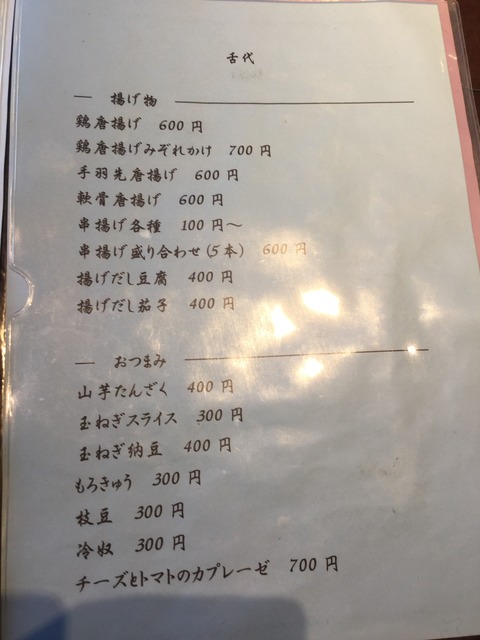 舌代
揚げ物
鶏唐揚げ 600円
鶏唐揚げみぞれかけ 700円
手羽先唐揚げ 600円
軟骨唐揚げ 600円
串揚げ各種 100円～
串揚げ盛り合わせ(5本) 600円
揚げだし豆腐 400円
揚げだし茄子 400円
おつまみ
山芋たんざく 400円
玉ねぎスライス 300円
玉ねぎ納豆 400円
もろきゅう 300円
枝豆 300円
冷奴 300円
チーズとトマトのカプレーゼ 700円